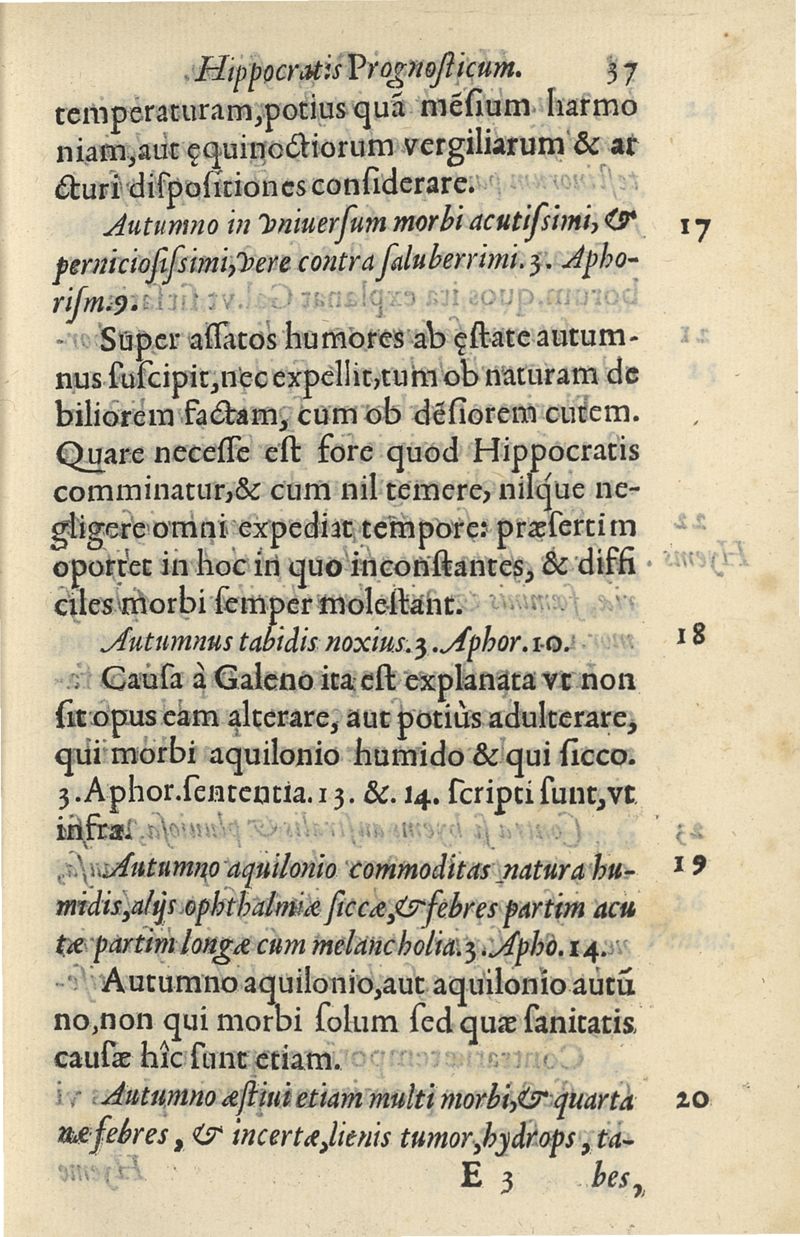 Hippocratis Prognosticum. 37
temperaturam, potius quã mẽsium harmo
niam, aut ęquinoctiorum vergiliarum & ar
cturi dispositiones considerare.
Autumno in vniuersum morbi acutissimi, & 17
perniciosissimi, vere contra saluberrimi. 3. Apho-
rism. 9.
Super assatos humores ab ęstate autum-
nus suscipit, nec expellit, tum ob naturam de
biliorem factam, cum ob dẽsiorem cutem.
Quare necesse est fore quod Hippocratis
comminatur, & cum nil temere, nilq́ue ne-
gligere omni expediat tempore: præsertim
oportet in hoc in quo inconstantes, & diffi
ciles morbi semper molestant.
Autumnus tabidis noxius. 3. Aphor. 10. 18
Causa à Galeno ita est explanata vt non
sit opus eam alterare, aut potiùs adulterare,
qui morbi aquilonio humido & qui sicco.
3. Aphor. sententia. 13. &. 14. scripti sunt, vt
infra.
Autumno aquilonio commoditas natura hu- 19
midis, alijs ophthalmiæ siccæ, & febres partim acu
tæ partim longæ cum melancholia. 3. Apho. 14.
Autumno aquilonio, aut aquilonio autũ
no, non qui morbi solum sed quæ sanitatis
causæ hîc sunt etiam.
Autumno æstiui etiam multi morbi, & quarta 20
næ febres, & incertæ, lienis tumor, hydrops, ta-
E 3 bes,